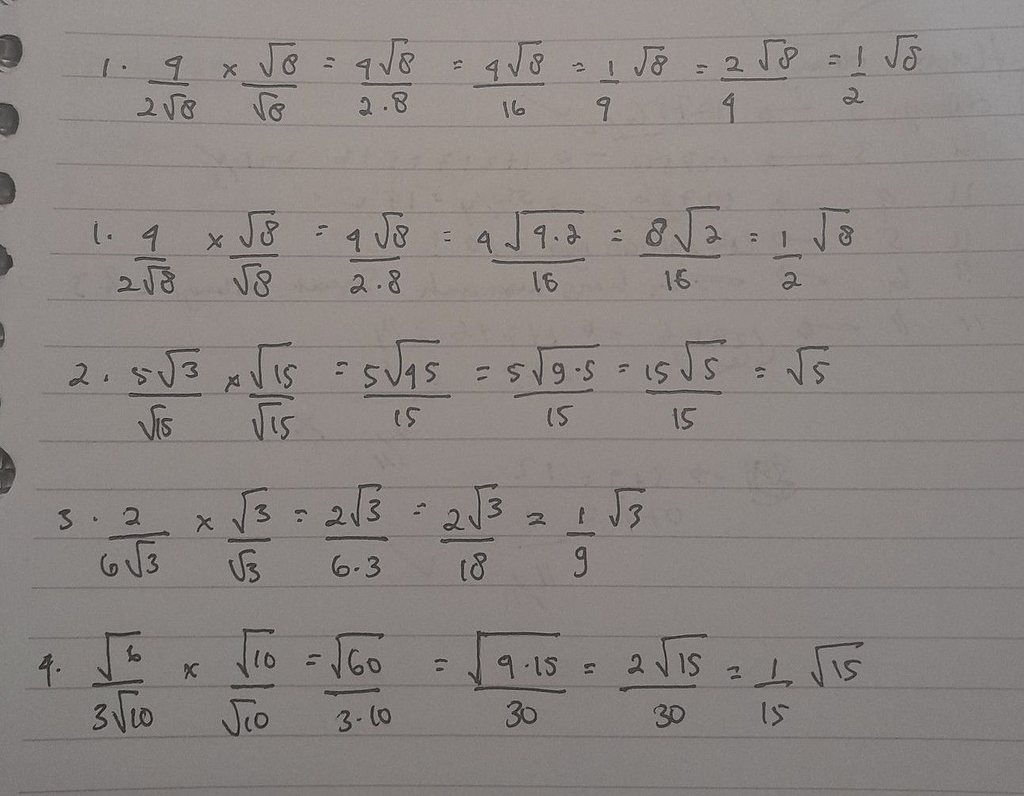 1. 4/2√8 × √8/√8 = 4√8/2.8 = 4√8/16 = 1/4 √8 = 2√8/4 = 1/2 √8
1. 4/2√8 × √8/√8 = 4√8/2.8 = 4√4.2/16 = 8√2/16 = 1/2 √8
2. 5√3/√15 × √15/√15 = 5√45/15 = 5√9.5/15 = 15√5/15 = √5
3. 2/6√3 × √3/√3 = 2√3/6.3 = 2√3/18 = 1/9 √3
4. √6/3√10 × √10/√10 = √60/3.10 = √4.15/30 = 2√15/30 = 1/15 √15